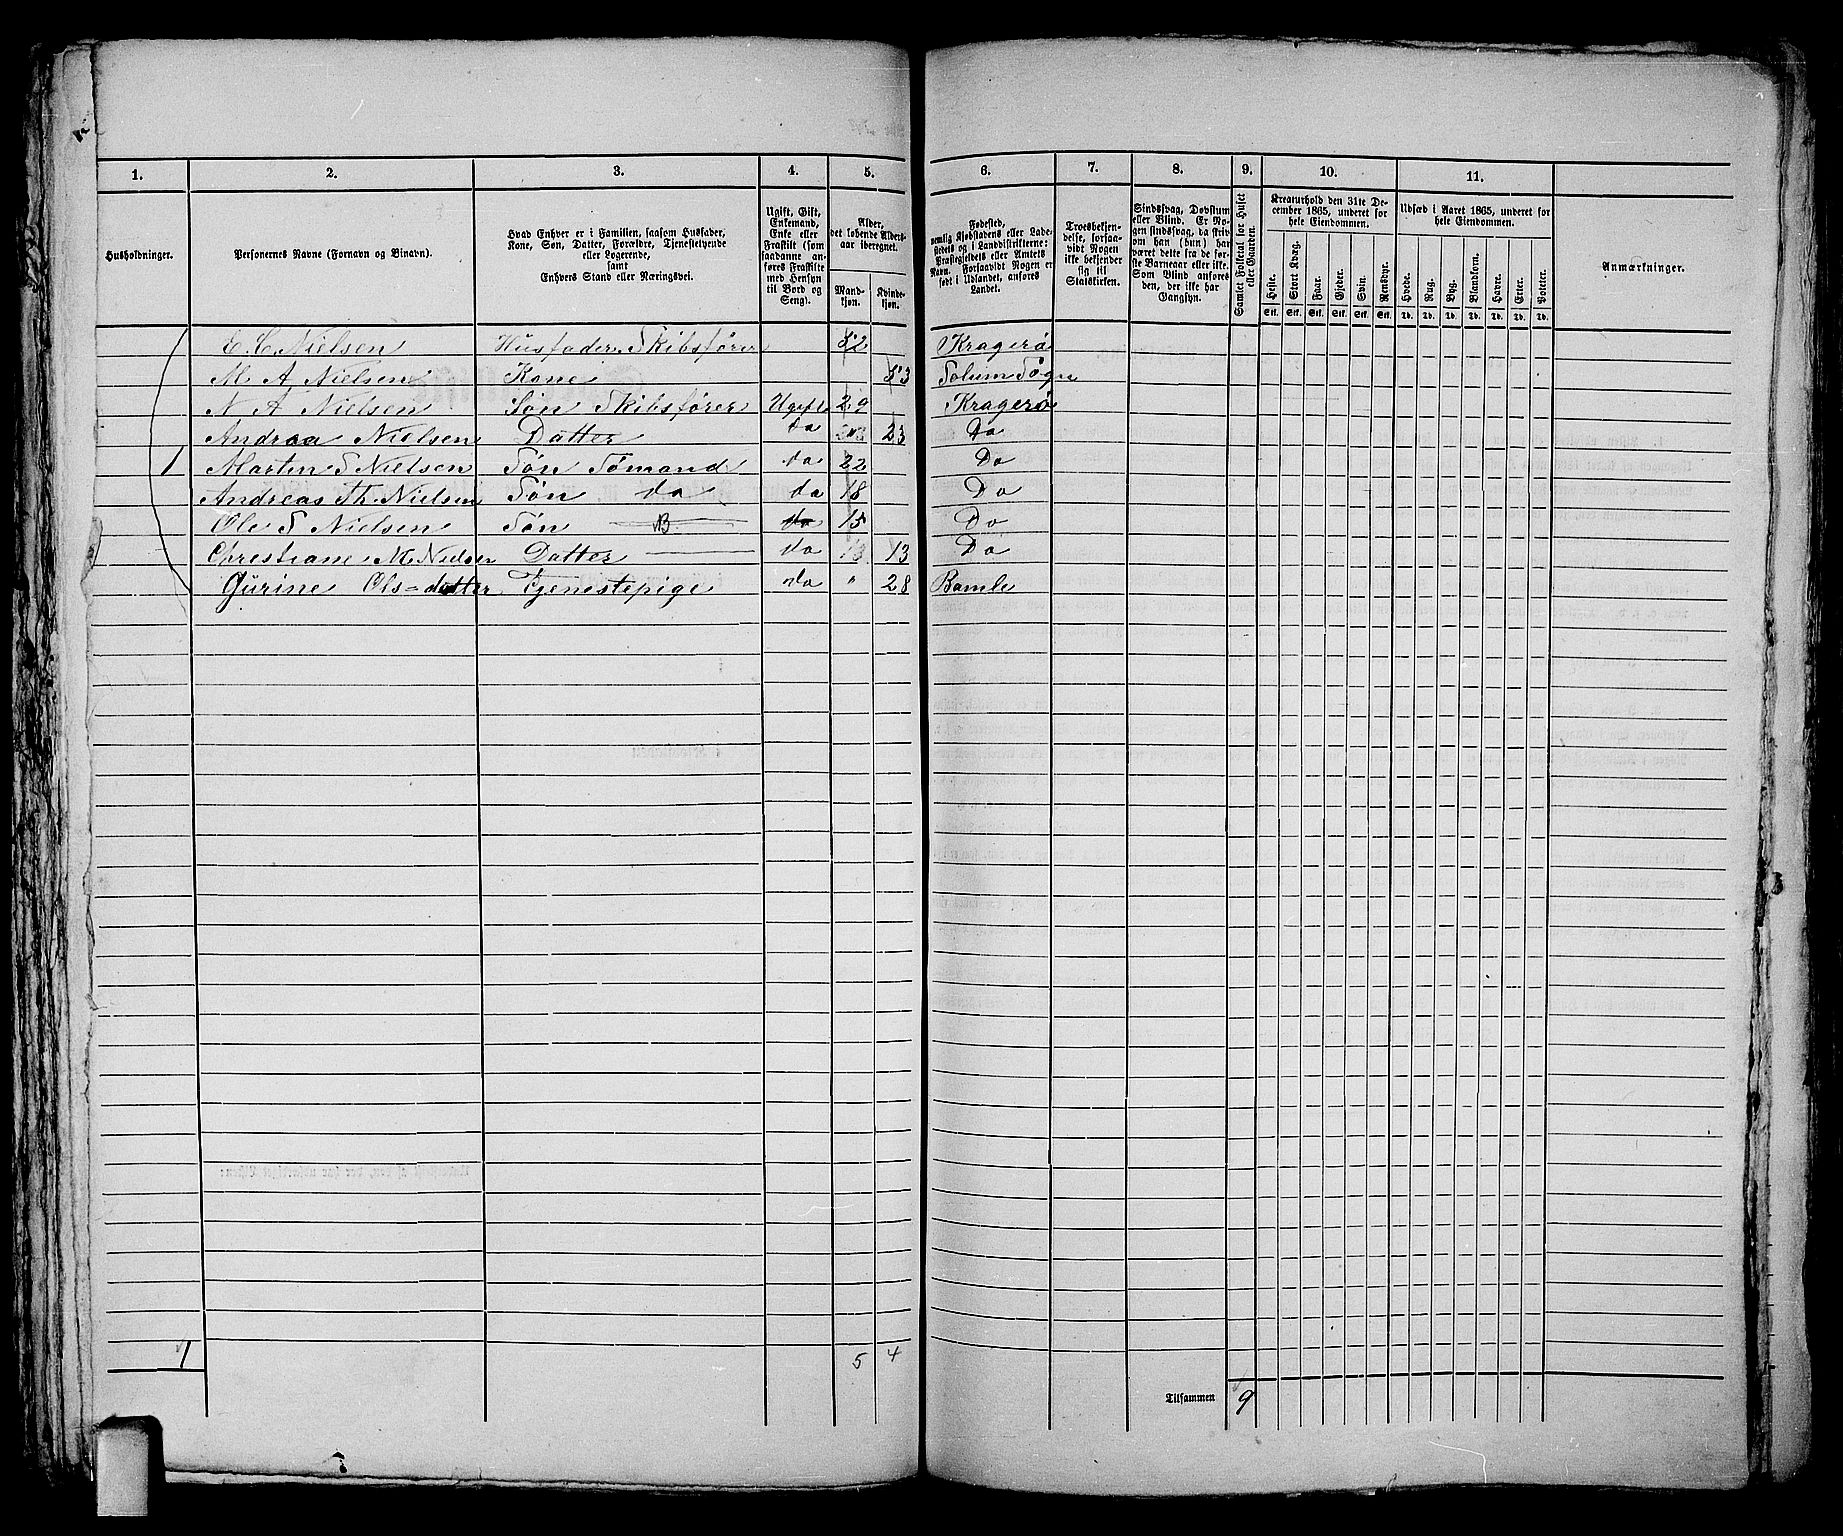 1. 2. 3. 4. 5. 6. 7. 8. 9. 10. 11.
Husholdninger.
Personernes Navne (Fornavn og Binavn).
Hvad Enhver er i Familien, saasom Husfader,
Kone, Søn, Datter, Forældre, Tjenestetyende
eller Logerende,
samt
Enhvers Stand eller Næringsvei.
Ugift, Gift,
Enkemand,
Enke eller
Fraskilt (som
saadanne an-
føres Fraskilte
med Hensyn
til Bord og
Seng).
Alder,
det løbende Alders-
aar iberegnet.
Mand-
kjøn.
Kvinde-
kjøn.
Fødested,
nemlig Kjøbstadens eller Lade-
stedets og i Landdistrikterne:
Præstegjeldets eller Amtets
Navn. Forsaavidt Nogen er
født i Udlandet, anføres
Landet.
Troesbekjen-
delse, forsaa-
vidt Nogen
ikke bekjender
sig til
Statskirken.
Sindssvag, Døvstum
eller Blind. Er No-
gen sindssvag, da skriv
om han (hun) har
været dette fra de før-
ste Barneaar eller ikke.
Som Blind anføres
den, der ikke har
Gangsyn.
Samlet Folketal for Huset
eller Gaarden.
Kreaturhold den 31te De-
cember 1865, underet for
hele Eiendommen.
Heste. Stort Kvæg. Faar. Gjeder. Svin. Rensdyr.
Stk. Stk. Stk. Stk. Stk. Stk.
Udsæd i Aaret 1865, underet for
hele Eiendommen.
Hvede. Rug. Byg. Blandkorn. Havre. Erter. Poteter.
Td. Td. Td. Td. Td. Td. Td.
Anmærkninger.
E. C. Nielsen Husfader. Skibsfører 52 Kragerø
M. A. Nielsen Kone 53 Solum Sogn
N A Nielsen Søn Skibsfører Ugift 29 Kragerø
Andrea Nielsen Datter do 23 Do
1 Marten S Nielsen Søn Sømand do 22 Do
Andreas Th. Nielsen Søn do do 18 Do
Ole S Nielsen Søn do 15 Do
Chrestiane M. Nielsen Datter do 13 13 Do
Gurine Ols=datter Tjenestepige do " 28 Bamle
1 5 4
Tilsammen 9